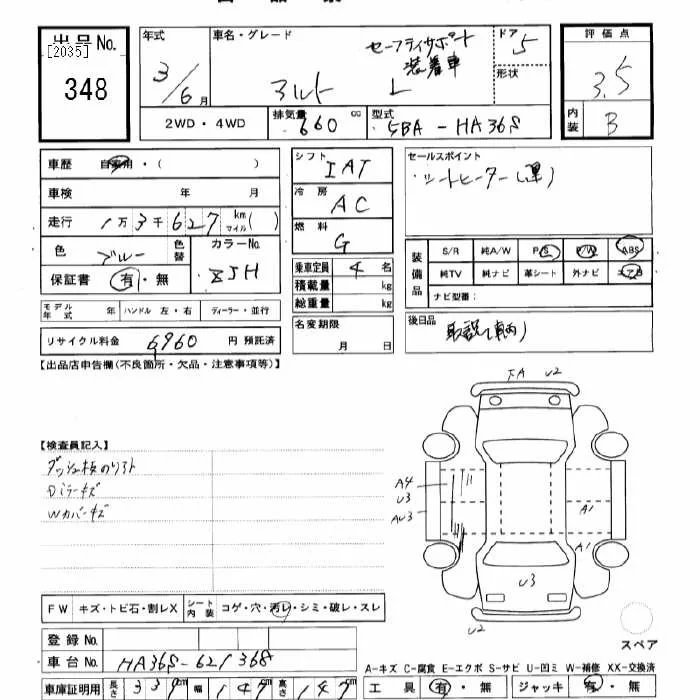 出品No.
[2035]
348
年式
3/6月
車名・グレード
セーフティサポート
装着車
アルト L
ドア 5
形状
評価点
3.5
内装 B
2WD・4WD
排気量 660 cc
型式 5BA-HA36S
車歴 自家用・( )
車検 年 月
走行 1万3千627 km マイル( )
色 ブルー 色替
カラーNo. ZJH
保証書 有・無
シフト IAT
冷房 AC
燃料 G
乗車定員 4名
積載量 kg
総重量 kg
セールスポイント
・シートヒーター(運)
装備品
S/R 純A/W P/S P/W ABS
純TV 純ナビ 革シート 外ナビ エアB
ナビ型番:
モデル年式 年 ハンドル 左・右 ディーラー・並行
名変期限
月 日
後日品
リサイクル料金 6960 円 預託済
【出品店申告欄(不良箇所・欠品・注意事項等)】
【検査員記入】
Dミラーキズ
Wカバーキズ
FA U2
A4
U3
AU3
A1
A1
U3
U2
FW キズ・トビ石・割レX シート内装 コゲ・穴・汚レ・シミ・破レ・スレ
登録No.
車台No. HA36S-621368
スペア
A-キズ C-腐食 E-エクボ S-サビ U-凹ミ W-補修 XX-交換済
車庫証明用 長さ 339cm 幅 147cm 高さ 147cm
工具 有・無 ジャッキ 有・無